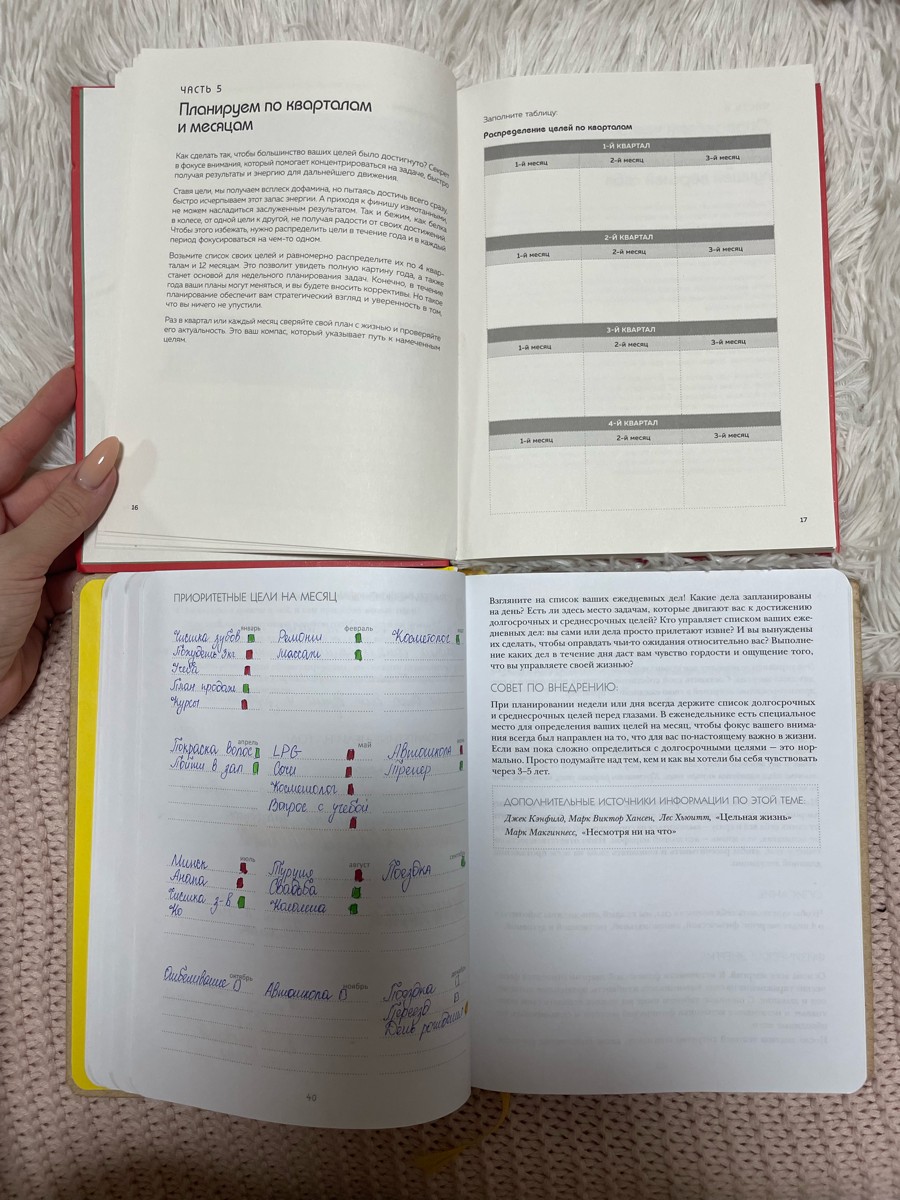 ЧАСТЬ 5
Планируем по кварталам
и месяцам
Как сделать так, чтобы большинство ваших целей было достигнуто? Секрет
в фокусе внимания, который помогает концентрироваться на задаче, быстро
получая результаты и энергию для дальнейшего движения.
Ставя цели, мы получаем всплеск дофамина, но пытаясь достичь всего сразу,
быстро исчерпываем этот запас энергии. А приходя к финишу измотанными,
не можем насладиться заслуженным результатом. Так и бежим, как белка
в колесе, от одной цели к другой, не получая радости от своих достижений.
Чтобы этого избежать, нужно распределить цели в течение года и в каждый
период фокусироваться на чем-то одном.
Возьмите список своих целей и равномерно распределите их по 4 квар-
талам и 12 месяцам. Это позволит увидеть полную картину года, а также
станет основой для недельного планирования задач. Конечно, в течение
года ваши планы могут меняться, и вы будете вносить коррективы. Но такое
планирование обеспечит вам стратегический взгляд и уверенность в том,
что вы ничего не упустили.
Раз в квартал или каждый месяц сверяйте свой план с жизнью и проверяйте
его актуальность. Это ваш компас, который указывает путь к намеченным
целям.
16
Заполните таблицу:
Распределение целей по кварталам
1-Й КВАРТАЛ
1-й месяц 2-й месяц 3-й месяц
2-Й КВАРТАЛ
1-й месяц 2-й месяц 3-й месяц
3-Й КВАРТАЛ
1-й месяц 2-й месяц 3-й месяц
4-Й КВАРТАЛ
1-й месяц 2-й месяц 3-й месяц
17
ПРИОРИТЕТНЫЕ ЦЕЛИ НА МЕСЯЦ
январь
Чистка зубов
Похудеть
Учеба
План продаж
Курсы
февраль
Ремонты
массаж
Косметолог
апрель
Покраска волос
Пойти в зал
май
LPG
Сочи
Косметолог
Вопрос с учебой
Автошкола
Тренер
июль
Минск
Анапа
Чистка з-в
Ко
август
Турция
Свадьба
Коломна
сентябрь
Поездка
октябрь
Отбеливание
ноябрь
Автошкола
декабрь
Поездка
Переезд
День рождения!
40
Взгляните на список ваших ежедневных дел! Какие дела запланированы
на день? Есть ли здесь место задачам, которые двигают вас к достижению
долгосрочных и среднесрочных целей? Кто управляет списком ваших еже-
дневных дел: вы сами или дела просто прилетают извне? И вы вынуждены
их сделать, чтобы оправдать чьи-то ожидания относительно вас? Выполне-
ние каких дел в течение дня даст вам чувство гордости и ощущение того,
что вы управляете своей жизнью?
СОВЕТ ПО ВНЕДРЕНИЮ:
При планировании недели или дня всегда держите список долгосрочных
и среднесрочных целей перед глазами. В еженедельнике есть специальное
место для определения ваших целей на месяц, чтобы фокус вашего внима-
ния всегда был направлен на то, что для вас по-настоящему важно в жизни.
Если вам пока сложно определиться с долгосрочными целями — это нор-
мально. Просто подумайте над тем, кем и как вы хотели бы себя чувствовать
через 3–5 лет.
ДОПОЛНИТЕЛЬНЫЕ ИСТОЧНИКИ ИНФОРМАЦИИ ПО ЭТОЙ ТЕМЕ:
Джек Кэнфилд, Марк Виктор Хансен, Лес Хьюитт, «Цельная жизнь»
Марк Макгиннесс, «Несмотря ни на что»